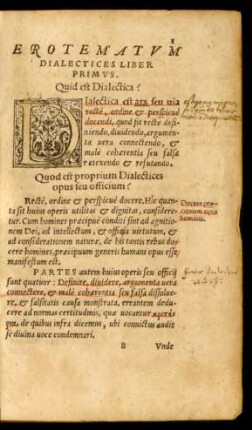 EROTEMATVM
DIALECTICES LIBER
PRIMVS.
Quid est Dialectica?
Dialectica est ars seu uia
rectè, ordine & perspicuè
docendi, quod fit recte defi-
niendo, diuidendo, argumen-
ta uera connectendo, &
malè cohærentia seu falsa
retexendo & refutando.
Quod est proprium Dialectices
opus seu officium?
Rectè, ordine & perspicuè docere. Hic quan-
ta sit huius operis utilitas & dignitas, considere-
tur. Cum homines præcipuè conditi sint ad agnitio-
nem Dei, ad intellectum, & officia uirtutum, &
ad considerationem naturæ, de his tantis rebus do-
cere homines, præcipuum generis humani opus esse
manifestum est.
PARTES autem huius operis seu officij
sunt quatuor: Definire, diuidere, argumenta uera
connectere, & malè cohærentia seu falsa dissolue-
re, & falsitatis causæ monstrata, errantem dedu-
cere ad normas certitudinis, quæ uocantur
de quibus infra dicemus, ubi conuictus audit
se diuina uoce condemnari.
B Vnde
Docere
homines.